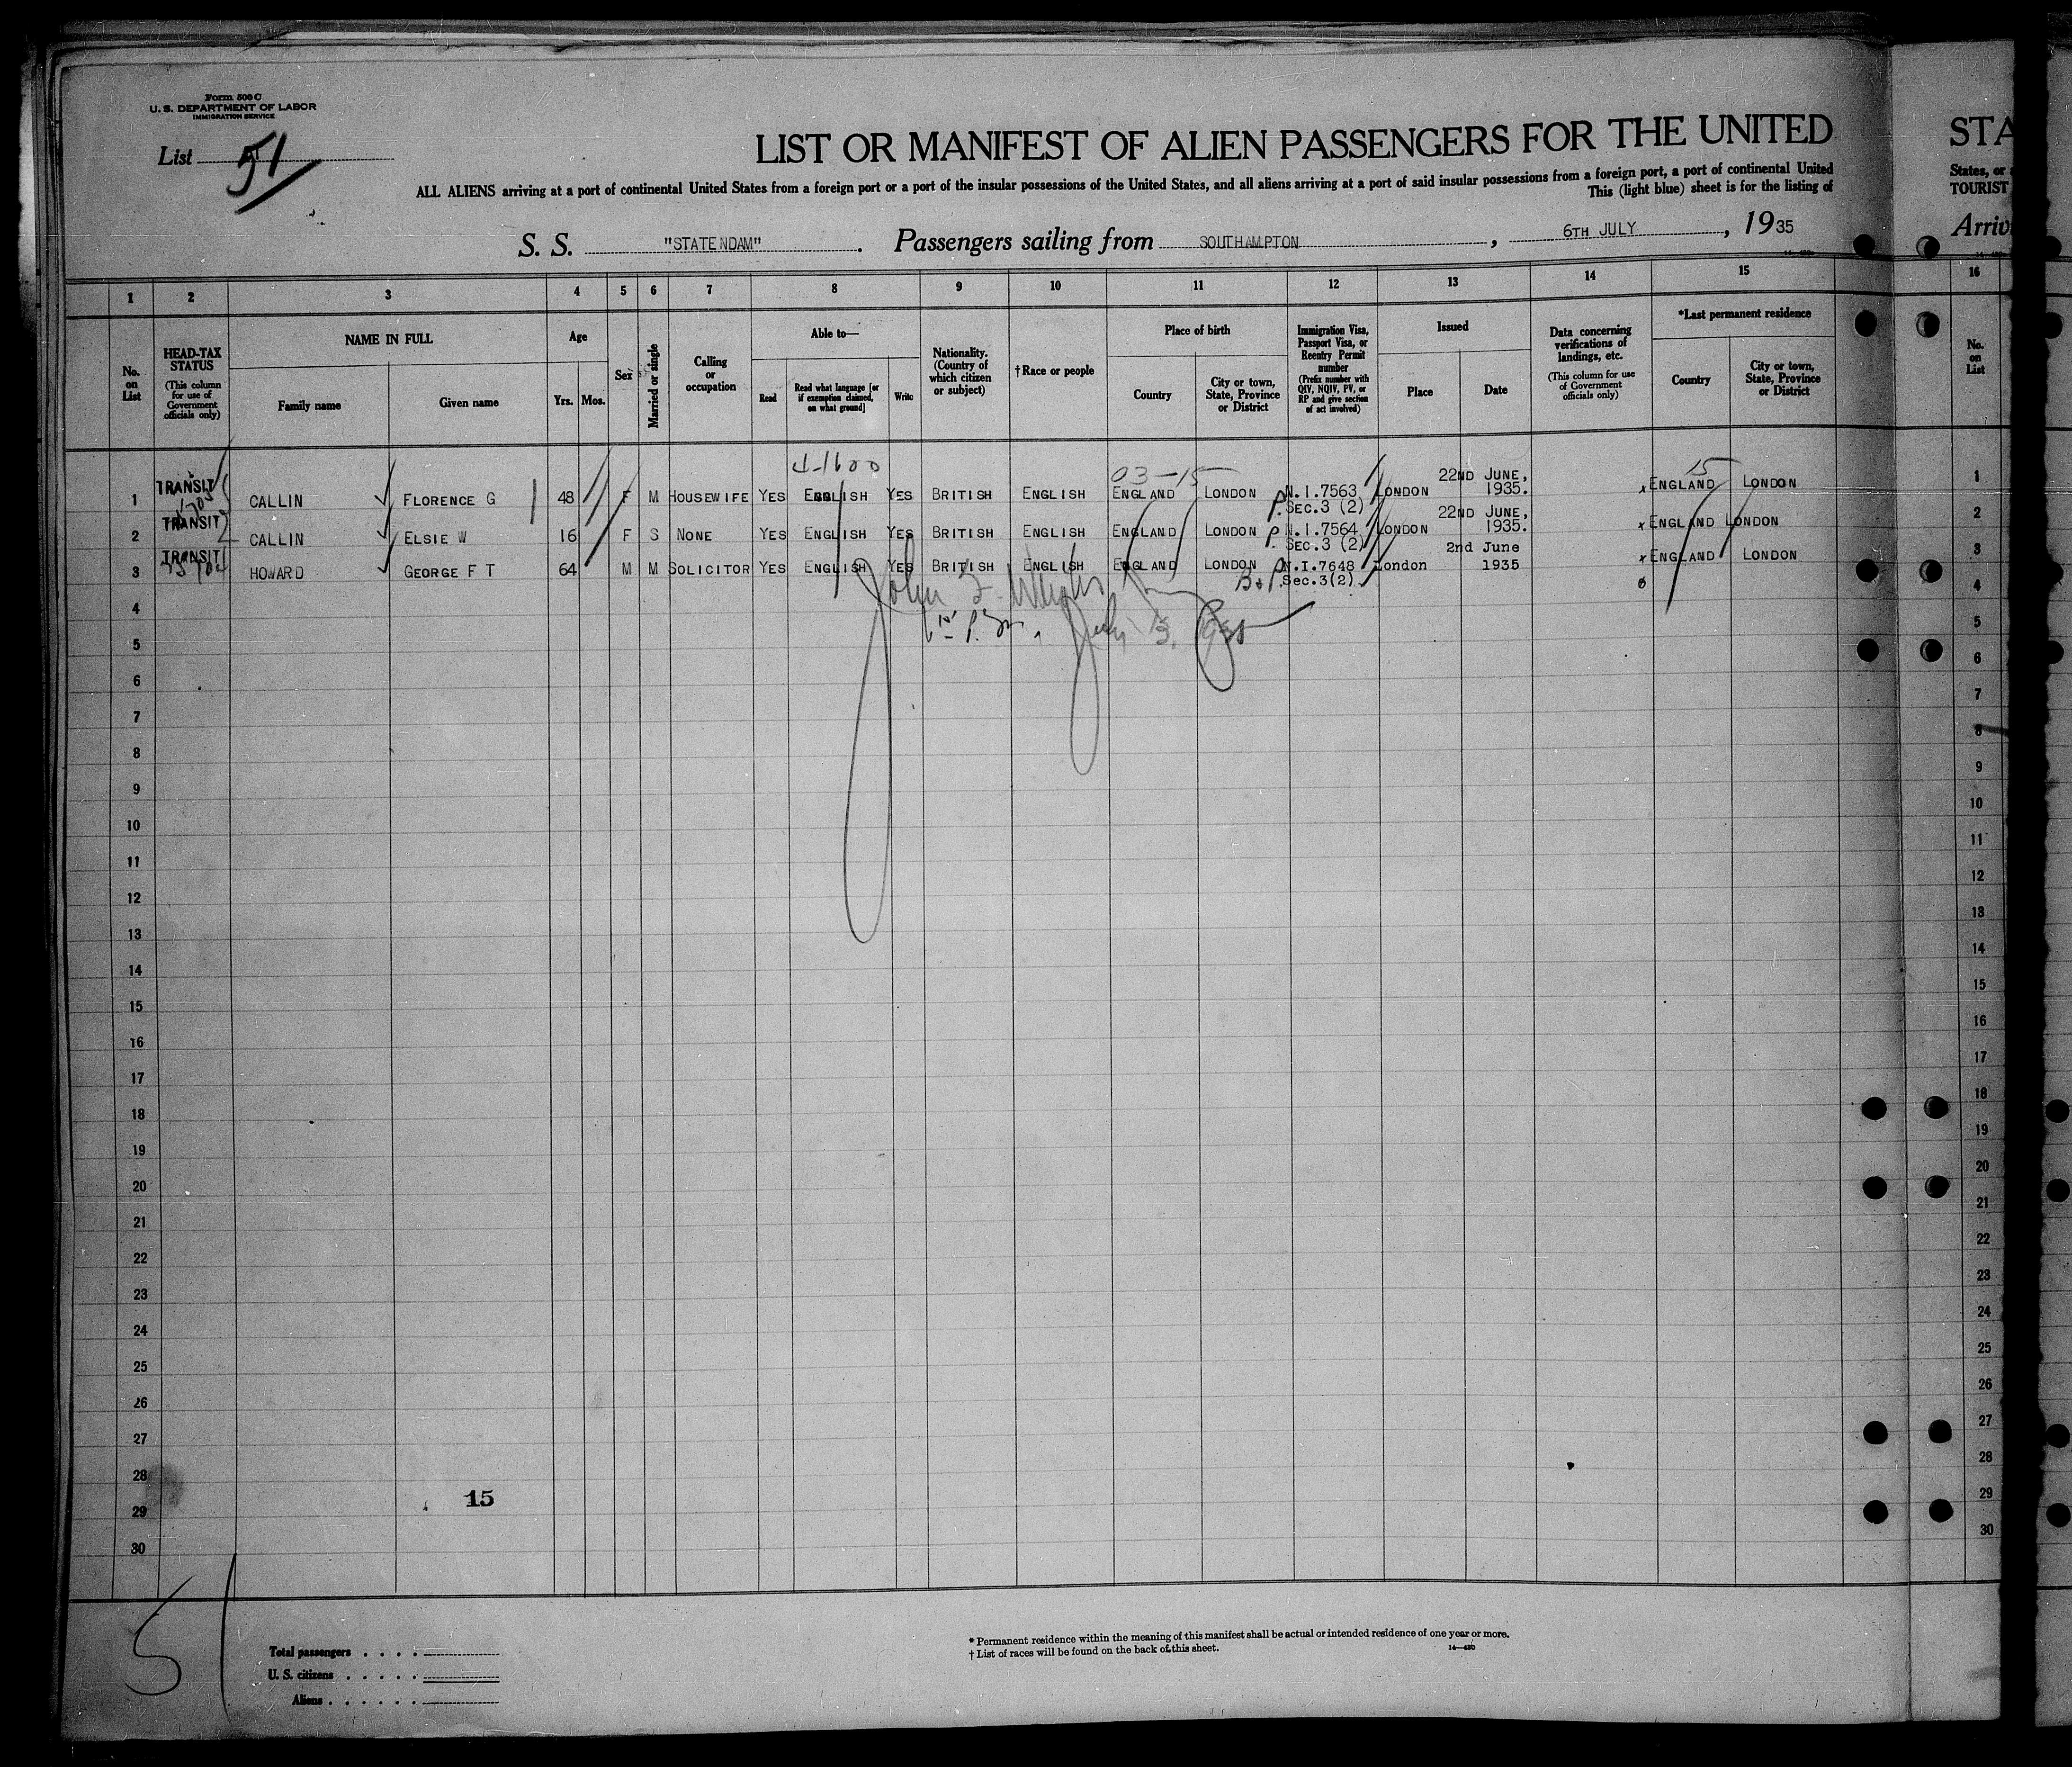 Form 500 C
U. S. DEPARTMENT OF LABOR
IMMIGRATION SERVICE
List 51
LIST OR MANIFEST OF ALIEN PASSENGERS FOR THE UNITED
STA
ALL ALIENS arriving at a port of continental United States from a foreign port or a port of the insular possessions of the United States, and all aliens arriving at a port of said insular possessions from a foreign port, a port of continental United
States, or
This (light blue) sheet is for the listing of
TOURIST
S. S. "STATENDAM". Passengers sailing from SOUTHAMPTON, 6TH JULY, 1935
Arriv
1 2 3 4 5 6 7 8 9 10 11 12 13 14 15 16
No. on List
HEAD-TAX STATUS
(This column for use of Government officials only)
NAME IN FULL
Family name
Given name
Age
Yrs. Mos.
Sex
Married or single
Calling or occupation
Able to—
Read
Read what language [or if exemption claimed, on what ground]
Write
Nationality. (Country of which citizen or subject)
†Race or people
Place of birth
Country
City or town, State, Province or District
Immigration Visa, Passport Visa, or Reentry Permit number
(Prefix number with QIV, NQIV, PV, or RP and give section of act involved)
Issued
Place
Date
Data concerning verifications of landings, etc.
(This column for use of Government officials only)
*Last permanent residence
Country
City or town, State, Province or District
No. on List
4-1600 03-15 15
1 TRANSIT CALLIN FLORENCE G 48 F M HOUSEWIFE YES ENGLISH YES BRITISH ENGLISH ENGLAND LONDON P. N.I.7563 SEC.3 (2) LONDON 22ND JUNE, 1935. ENGLAND LONDON 1
2 TRANSIT CALLIN ELSIE W 16 F S NONE YES ENGLISH YES BRITISH ENGLISH ENGLAND LONDON P. N.I.7564 SEC.3 (2) LONDON 22ND JUNE, 1935. ENGLAND LONDON 2
3 TRANSIT HOWARD GEORGE F T 64 M M SOLICITOR YES ENGLISH YES BRITISH ENGLISH ENGLAND LONDON P. N.I.7648 Sec.3(2) London 2nd June 1935 ENGLAND LONDON 3
4 4
5 5
6 6
7 7
8 8
9 9
10 10
11 11
12 12
13 13
14 14
15 15
16 16
17 17
18 18
19 19
20 20
21 21
22 22
23 23
24 24
25 25
26 26
27 27
28 28
29 15 29
30 30
51
Total passengers . . . .
U. S. citizens . . . . .
Aliens . . . . . .
* Permanent residence within the meaning of this manifest shall be actual or intended residence of one year or more.
† List of races will be found on the back of this sheet.
14—480